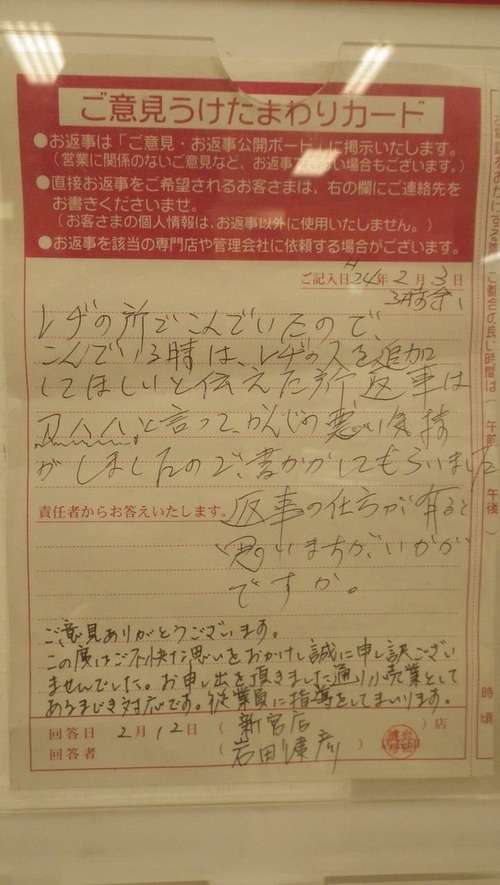 ご意見うけたまわりカード
●お返事は「ご意見・お返事公開ボード」に掲示いたします。
(営業に関係のないご意見など、お返事できない場合もございます。)
●直接お返事をご希望されるお客さまは、右の欄にご連絡先を
お書きくださいませ。
(お客さまの個人情報は、お返事以外に使用いたしません。)
●お返事を該当の専門店や管理会社に依頼する場合がございます。
ご記入日 H24年2月3日
レヂの所でこんでいたので、
こんでいる時は、レヂの人を追加
してほしいと伝えた所返事は
と言って、かんじの悪い気持
がしましたので、書かがしてもらいました
返事の仕方が有ると
思いまちが、いかが
ですか。
責任者からお答えいたします。
ご意見ありがとうございます。
この度はご不快な思いをおかけし誠に申し訳ござい
ませんでした。お申し出を頂きました通り小売業として
あるまじき対応です。従業員に指導をしてまいります。
回答日 2月12日 (新宮店)店
回答者 (岩田)
ご都合の良し時間は(午前
午後)
時頃